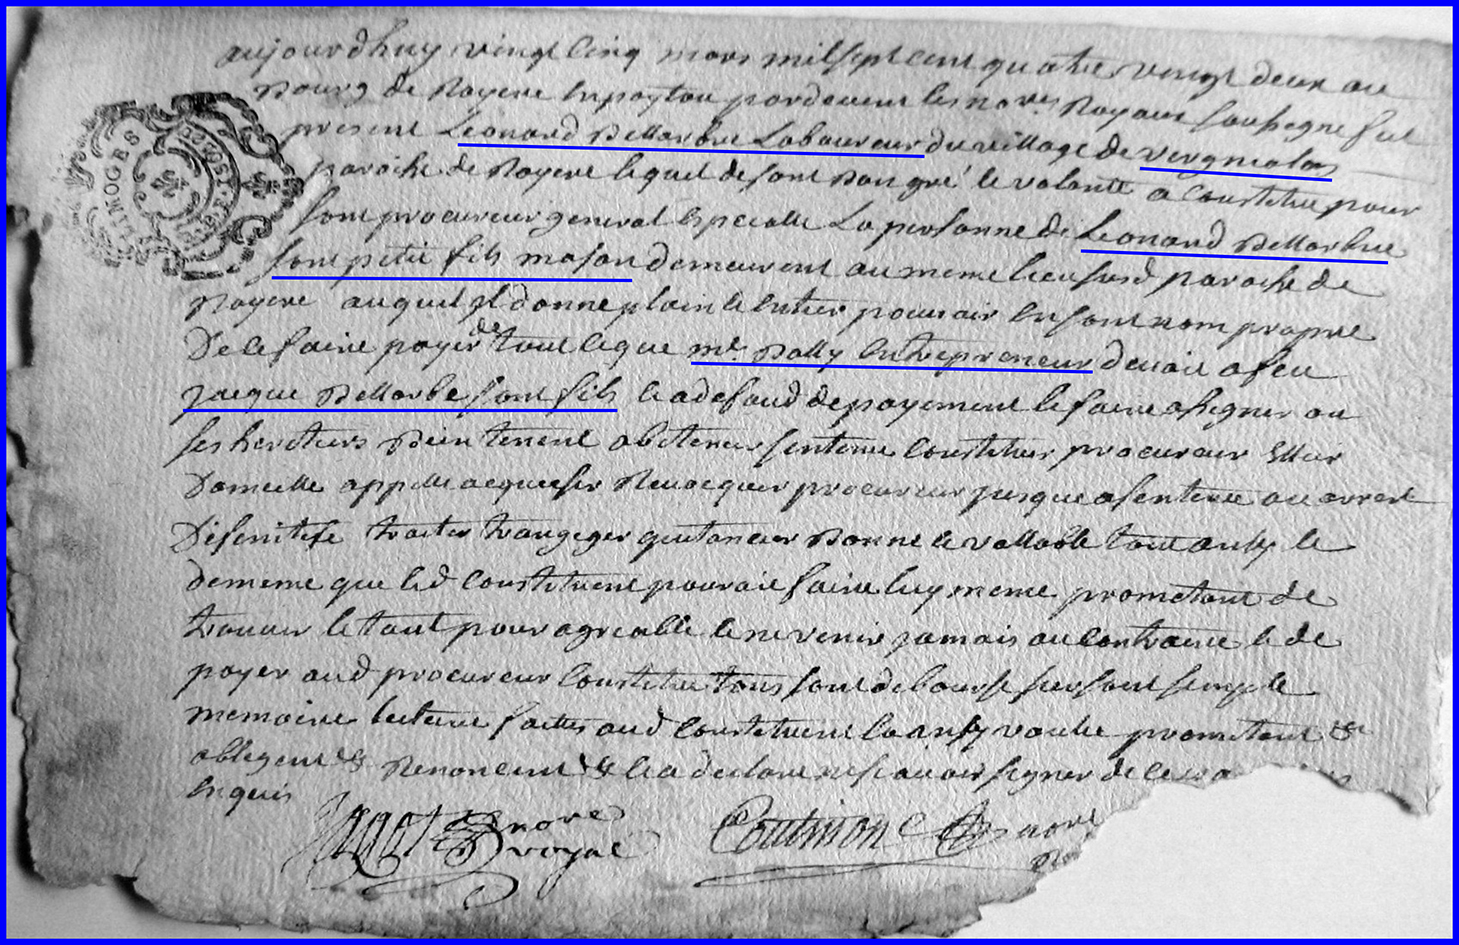 aujourdhuy vingt cinq mars mil sept cent quatre vingt deux au
Bourg de Royere en poytou pardevent les nores Royaux soussigne fut
present Leonard Dellarbre Laboureur du village de vergniolas
paroiche de Royere lequel de sont bon gré le volonté a constitue pour
sont procureur general especialle La personne de Leonard Dellarbre
sont petit fils mason demeurent au meme lieu susd paroiche de
Royere auquel jl donne plain et entier pouvoir en sont nom propre
De se faire payer de tout se que mr. Dally entrepreneur devoit a feu
jacque Dellarbe sont fils et a defaud de payement le faire assigner ou
ses heretiers bien tenent obtenir sentence constituer procureur Ellire
Domicille appelle acquieser Revocquer procureur jusque a sentence ou arrest
Difinitife traiter trangeger quitancer bonne et vallable tout ainsy et
de meme que led constituent pouroit faire luy meme prometant de
trouver le tout pour agreable et ne venir jamais au contraire et de
payer aud procureur constitue tous sont debourse sur sont simple
memoire lecture faitte aud constituent la insy voulu prometant &
obligent & Renoncent & et a declare ne scavoir signer de ce
enquis
nore royal
Coutinon nore
LIMOGES